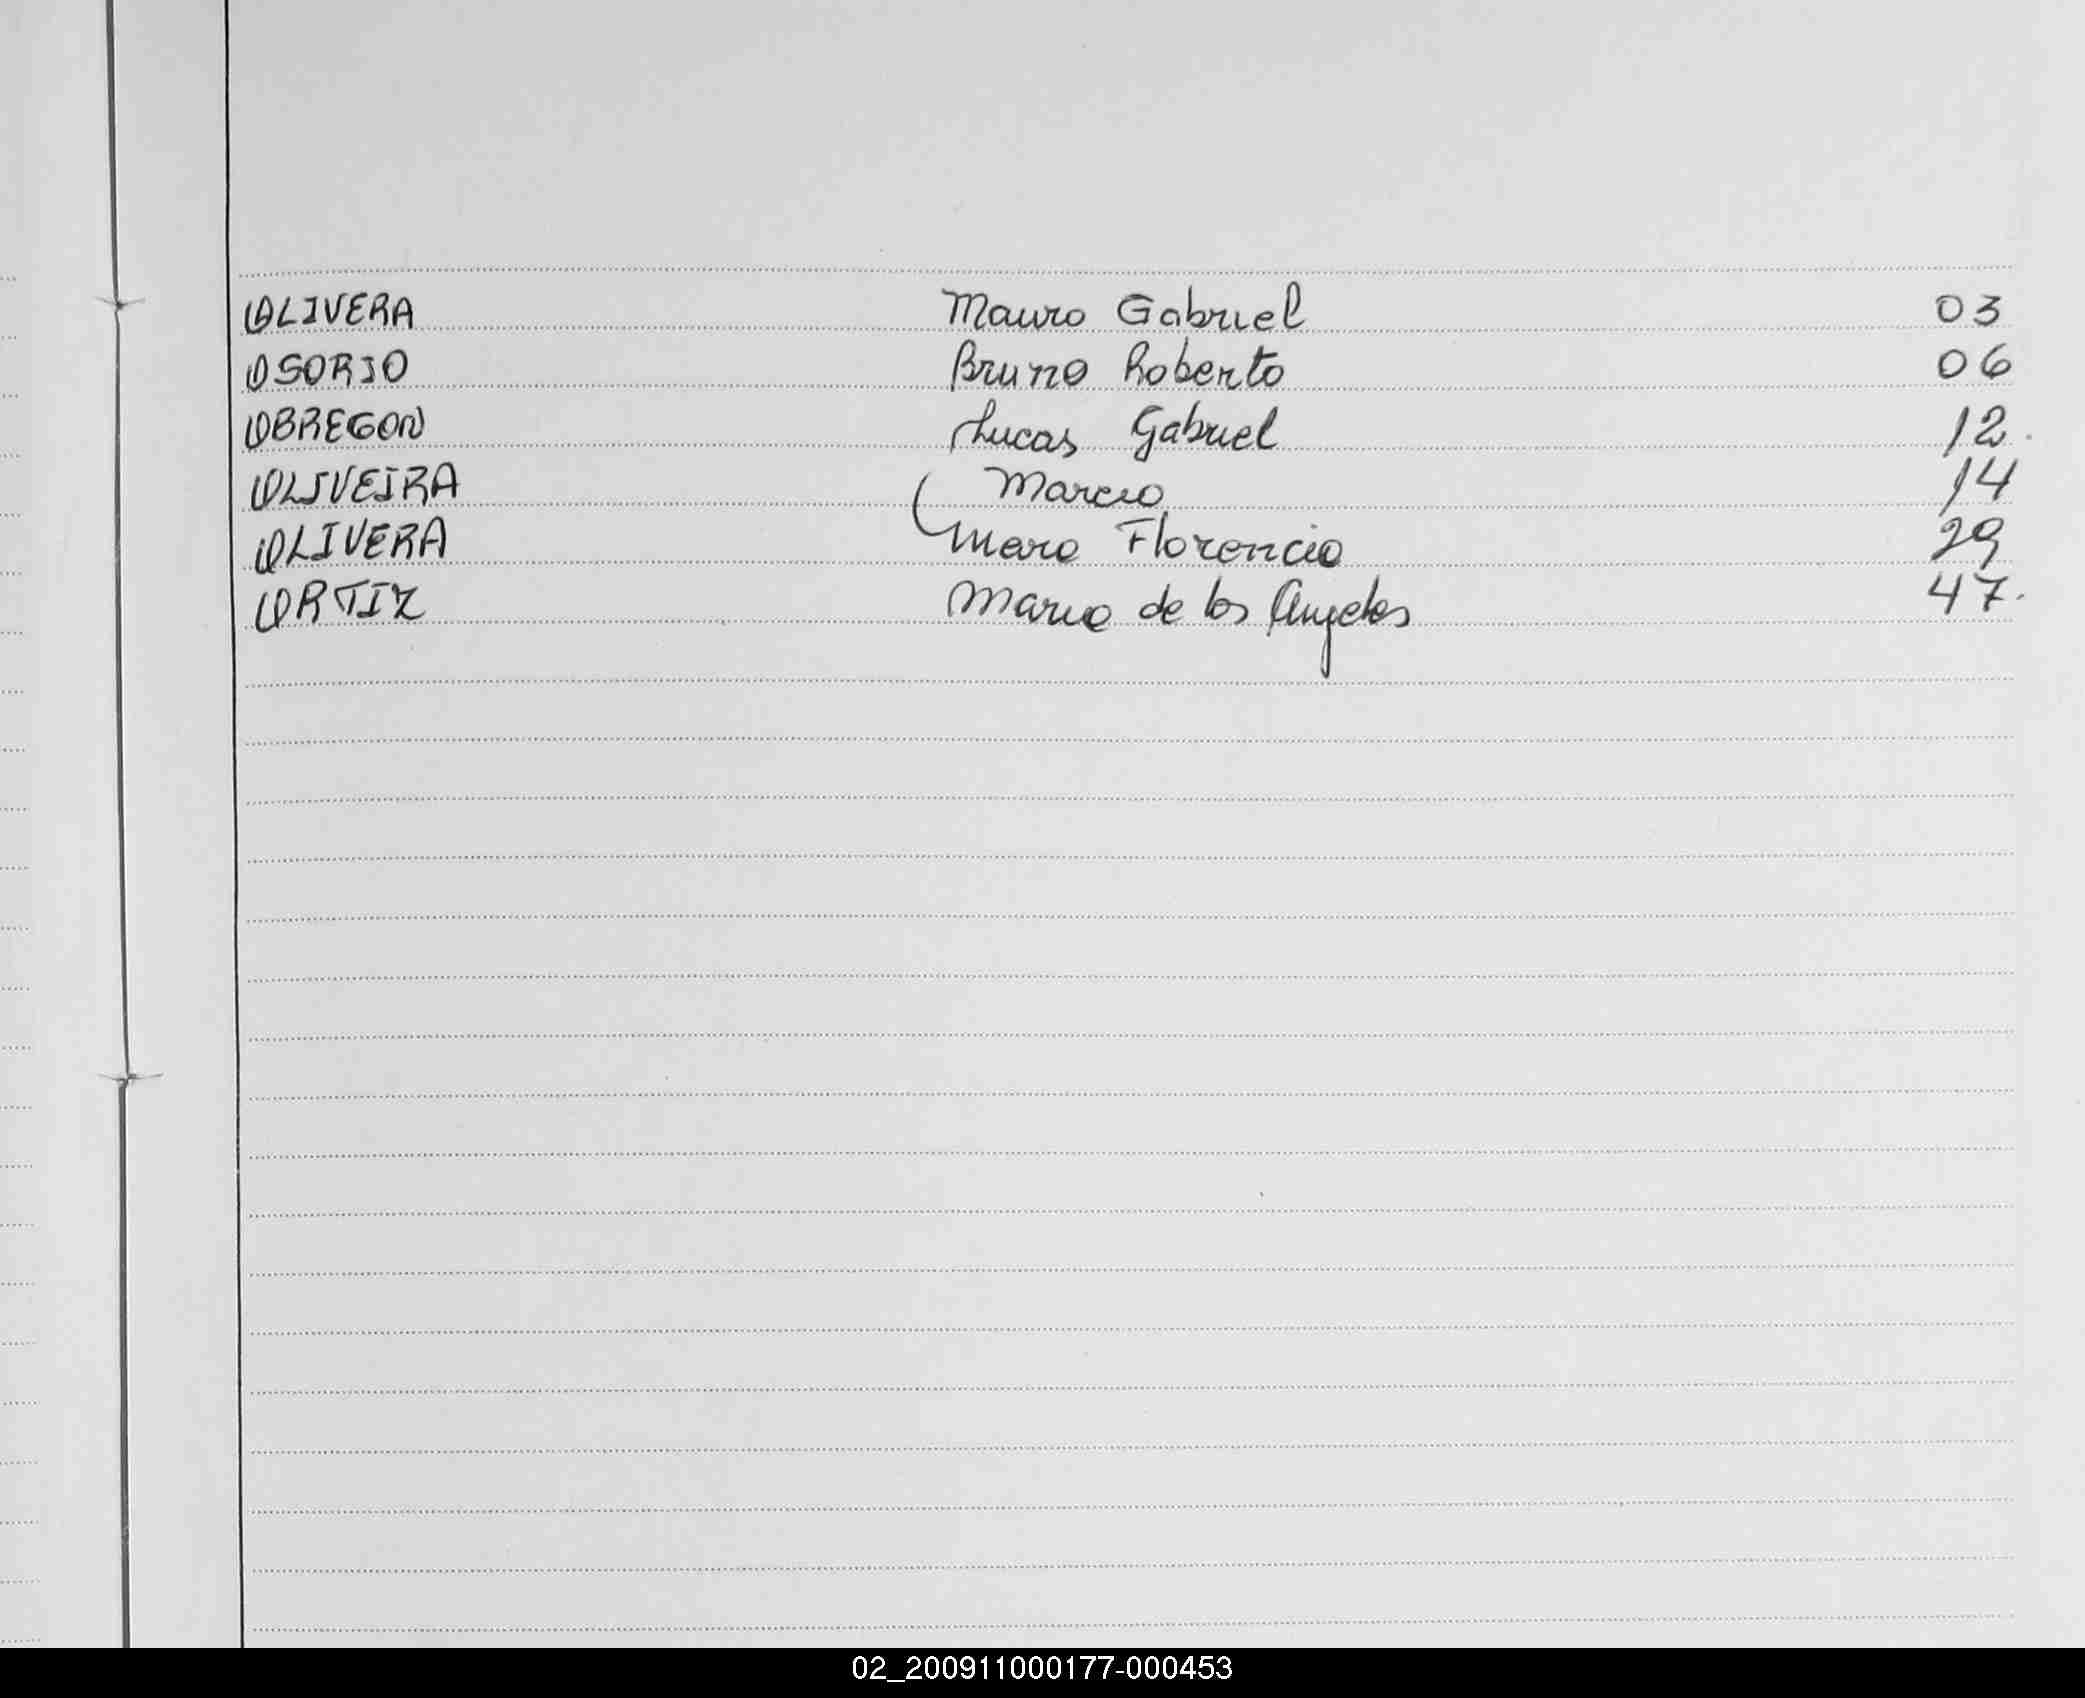 OLIVERA Mauro Gabriel 03
OSORIO Bruno Roberto 06
OBREGON Lucas Gabriel 12.
OLIVEIRA Marcio 14
OLIVERA Florencia 29
ORTIZ Maria de los Angeles 47.
02_200911000177-000453